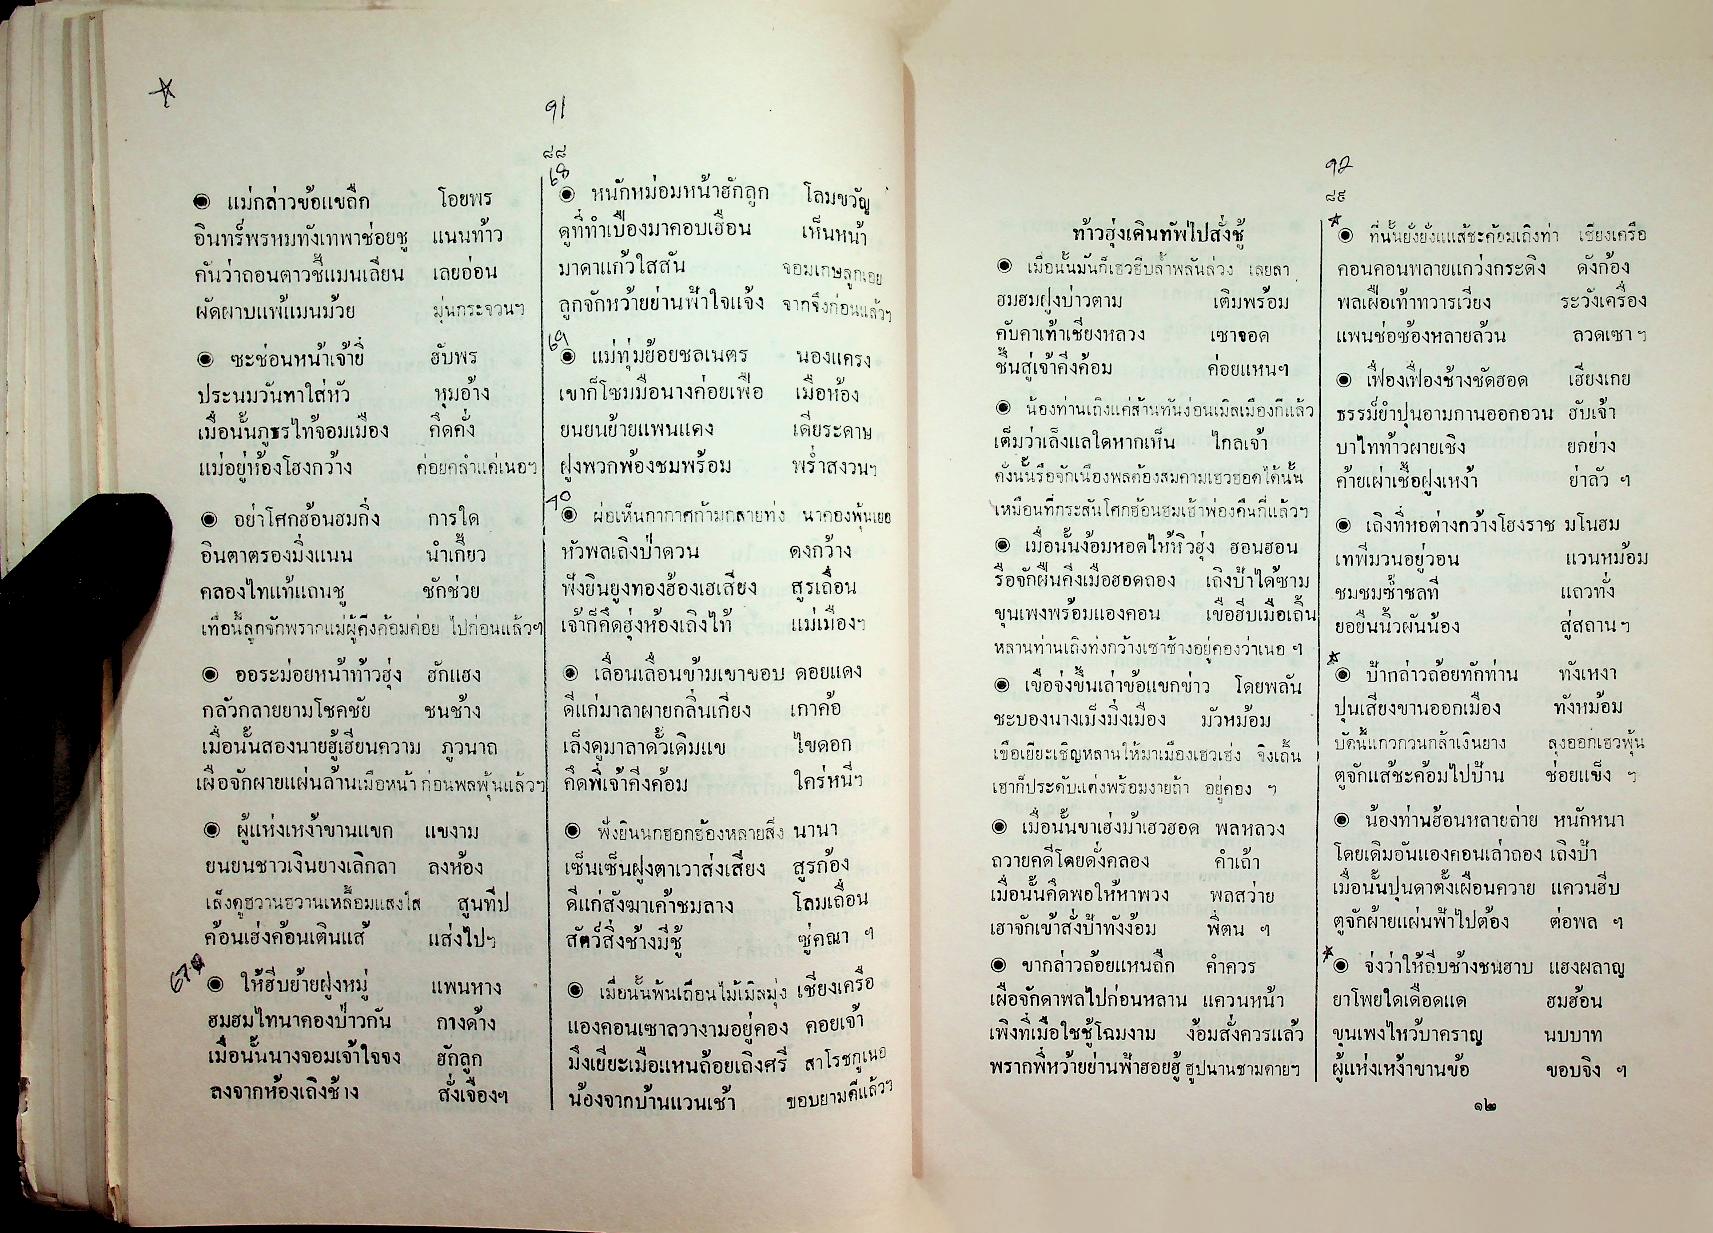 91
๘๘
◉ แม่กล่าวข้อแขถึก โอยพร
อินทร์พรหมทังเทพาช่อยชู แนนท้าว
คันว่าถอนตาวชี้แมนเลียน เลยอ่อน
ผัดผาบแพ้แมนม้วย มุ่นกระจวนฯ
◉ ซะซ่อนหน้าเจ้ายี่ ฮับพร
ประนมวันทาใส่หัว หุมอ้าง
เมื่อนั้นภูธรไท้จอมเมือง คึดคั่ง
แม่อยู่ห้องโฮงกว้าง ค่อยคลำแค่เนอฯ
◉ อย่าโศกฮ้อนฮมกิ่ง การใด
อินตาตรองมิ่งแนน นำเกี้ยว
คลองไทแท้แถนชู ชักช่วย
เทื่อนี้ลูกจักพรากแม่ผู้คีงค้อมค่อย ไปก่อนแล้วฯ
◉ ออระม่อยหน้าท้าวฮุ่ง ฮักแฮง
กลัวกลายยามโชคชัย ชนช้าง
เมื่อนั้นสองนายฮู้เฮียนความ ภูวนาถ
เผือจักผายแผ่นล้านเมือหน้า ก่อนพลพุ้นแล้วฯ
◉ ผู้แห่งเหง้าขานแขก แขงาม
ยนยนชาวเงินยางเลิกลา ลงห้อง
เล็งดูฮวานฮวานเหลื้อมแสงใส สูนทีป
ค้อนเฮ่งค้อนเตินแส้ แส่งไปฯ
67
◉ ให้ฮีบย้ายฝูงหมู่ แพนหาง
ฮมฮมไทนาคองป่าวกัน กางด้าง
เมื่อนั้นนางจอมเจ้าใจจง ฮักลูก
ลงจากห้องเถิงช้าง สั่งเจืองฯ
68
◉ หนักหม่อมหน้าฮักลูก โลมขวัญ
ดูที่ทำเบืองมาคอบเฮือน เห็นหน้า
มาดาแก้วใสสัน จอมเกษลูกเอย
ลูกจักหว้ายย่านฟ้าใจแจ้ง จากจึงก่อนแล้วฯ
69
◉ แม่ทุ่มย้อยชลเนตร นองแครง
เขาก็โซมมือนางค่อยเพือ เมื่อห้อง
ยนยนย้ายแพนแคง เดียระดาษ
ฝูงพวกพ้องชมพร้อม พร่ำสงวนฯ
70
◉ ผ่อเห็นกากาศก้ามกลายทั่ง นาคองพุ้นเยอ
หัวพลเถิงป่าดวน ดงกว้าง
ฟังยินยูงทองฮ้องเฮเสียง สูรเถื่อน
เจ้าก็คึดฮุ่งห้องเถิงไท้ แม่เมืองฯ
◉ เลื่อนเลื่อนข้ามเขาขอบ ดอยแดง
ดีแก่มาลาผายกลิ่นเกียง เกาค้อ
เล็งดูมาลาดั้วเดิมแข ไขดอก
คึดพี่เจ้าคีงค้อม ใคร่หนีฯ
◉ ฟังยินนกฮอกฮ้องหลายสิ่ง นานา
เซ็นเซ็นฝูงตาเวาส่งเสียง สูรก้อง
ดีแก่สังฆาเค้าชมลาง โลมเถื่อน
สัตว์สิ่งช้างมีชู้ ซู่คณา ฯ
◉ เมื่อนั้นพ้นเถือนไม้เมิลมุ่ง เชียงเครือ
แองคอนเซาลวางามอยู่คอง คอยเจ้า
มึงเยียะเมือแหนถ้อยเถิงศรี สาโรชกูเนอ
น้องจากบ้านแวนเช้า ขอบยามคีแล้วฯ
92
๘๙
ท้าวฮุ่งเดินทัพไปสั่งชู้
◉ เมื่อนั้นมันก็เฮวฮีบล้ำพลันล่วง เลยลา
ฮมฮมฝูงบ่าวตาม เติมพร้อม
คับคาเท้าเชียงหลวง เซาจอด
ขึ้นสู่เจ้าคีงค้อม ค่อยแหนฯ
◉ น้องท่านเถิงแค่ส้านทันง่อนเมิลเมืองกี่แล้ว
เต็มว่าเล็งแลใดหากเห็น ไกลเจ้า
ดั่งนั้นรือจักเนืองพลต้องสมคามเฮวฮอดได้นั้น
เหมือนที่กระสันโศกฮ้อนฮมเฮ้าพ่องคืนกี่แล้วฯ
◉ เมื่อนั้นง้อมทอดไห้หิวฮุ่ง ฮอนฮอน
รือจักผืนคึงเมื่อฮอดถอง เถิงป้าได้ซาม
ขุนเพงพร้อมแองคอน เขือฮีบเมือเถิ้น
หลานท่านเถิงทั่งกว้างเซาช้างอยู่คองว่าเนอ ฯ
◉ เขือจ่งขึ้นเล่าข้อแขกข่าว โดยพลัน
ซะบองนางเม็งมิ่งเมือง มัวหม้อม
เขือเยียะเชิญหลานให้มาเมืองเฮวเฮ่ง จิงเถิ้น
เฮาก็ประดับแต่งพร้อมงายถ้า อยู่คอง ฯ
◉ เมื่อนั้นขาเฮ่งม้าเฮวฮอด พลหลวง
ถวายคดีโดยดั่งคลอง คำเถ้า
เมื่อนั้นคึดพอให้หาพวง พลสว่าย
เฮาจักเข้าสั่งป้าทังง้อม พี่ตน ฯ
◉ ขากล่าวถ้อยแหนถึก คำควร
เผือจักดาพลไปก่อนหลาน แควนหน้า
เพิงที่เมื่อใชชู้โฉมงาม ง้อมสั่งควรแล้ว
พรากพี่หว้ายย่านฟ้าฮอยฮู้ ฮูปนานซามดายฯ
◉ ที่นั้นยั่งยั่งแแส้ชะค้อมเถิงท่า เชียงเครือ
คอนคอนพลายแกว่งกระดิง ดังก้อง
พลเผือเท้าทวารเวียง ระวังเครื่อง
แพนช่อซ้องหลายล้วน ลวดเซา ฯ
◉ เฟื่องเฟื่องช้างชัดฮอด เฮียงเกย
ธรรม์ยำปุนอามกานออกอวน ฮับเจ้า
บาไทท้าวผายเชิง ยกย่าง
ค้ายเผ่าเชื้อฝูงเหง้า ย่าลัว ฯ
◉ เถิงที่หอต่างกว้างโฮงราช มโนฮม
เทพีมวนอยู่วอน แวนหม้อม
ชมชมซ้ำชลที แถวทั่ง
ยอยืนนิ้วผันน้อง สู่สถานฯ
◉ ป้ากล่าวถ้อยทักท่าน ทังเหงา
ปุนเสียงขานออกเมือง ทังหม้อม
บัดนี้แกวกวนกล้าเงินยาง ลุงออกเฮวพุ้น
ตูจักแส้ชะค้อมไปบ้าน ช่อยแข็ง ฯ
◉ น้องท่านฮ้อนหลายถ่าย หนักหนา
โดยเดิมอันแองคอนเล่าถอง เถิงป้า
เมื่อนั้นปุนดาตั้งเผือนควาย แควนฮีบ
ตูจักผ้ายแผ่นฟ้าไปต้อง ต่อพล ฯ
◉ จ่งว่าให้ถีบช้างชนฮาบ แฮงผลาญ
ยาโพยใดเดือดแด ฮมฮ้อน
ขุนเพงไหว้บาคราญ นบบาท
ผู้แห่งเหง้าขานข้อ ขอบจิง ฯ
๑๒